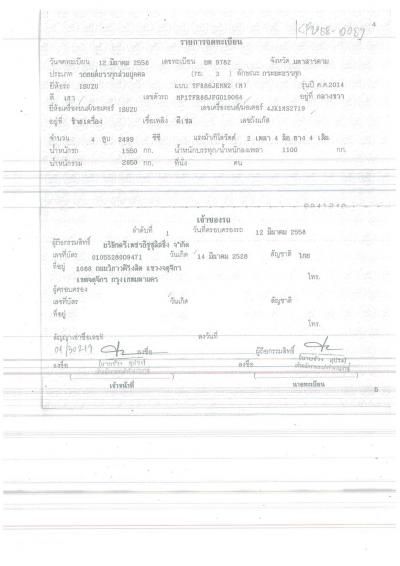 KPM58-0089
4
รายการจดทะเบียน
วันจดทะเบียน 12 มีนาคม 2558 เลขทะเบียน ยศ 9782 จังหวัด มหาสารคาม
ประเภท รถยนต์บรรทุกส่วนบุคคล (รย. 3 ) ลักษณะ กระบะบรรทุก
ยี่ห้อรถ ISUZU แบบ (M) รุ่นปี ค.ศ.2014
สี เทา เลขตัวรถ อยู่ที่ กลางขวา
ยี่ห้อเครื่องยนต์/มอเตอร์ ISUZU เลขเครื่องยนต์/มอเตอร์ 4JK1MS2719
อยู่ที่ ซ้ายเครื่อง เชื้อเพลิง ดีเซล เลขถังแก๊ส
จำนวน 4 สูบ 2499 ซีซี แรงม้า/กิโลวัตต์ 2 เพลา 4 ล้อ ยาง 4 เส้น
น้ำหนักรถ 1550 กก. น้ำหนักบรรทุก/น้ำหนักลงเพลา 1100 กก.
น้ำหนักรวม 2650 กก. ที่นั่ง คน
เจ้าของรถ
ลำดับที่ 1 วันที่ครอบครองรถ 12 มีนาคม 2558
ผู้ถือกรรมสิทธิ์ บริษัทตรีเพชรอีซูซุลิสซิ่ง จำกัด
เลขที่บัตร 0105528009471 วันเกิด 14 มีนาคม 2528 สัญชาติ ไทย
ที่อยู่ 1088 ถนนวิภาวดีรังสิต แขวงจตุจักร
เขตจตุจักร กรุงเทพมหานคร โทร.
ผู้ครอบครอง
เลขที่บัตร วันเกิด สัญชาติ
ที่อยู่
โทร.
สัญญาเช่าซื้อเลขที่ ลงวันที่
ลงชื่อ ผู้ถือกรรมสิทธิ์
ลงชื่อ ลงชื่อ
เจ้าหน้าที่ นายทะเบียน
5